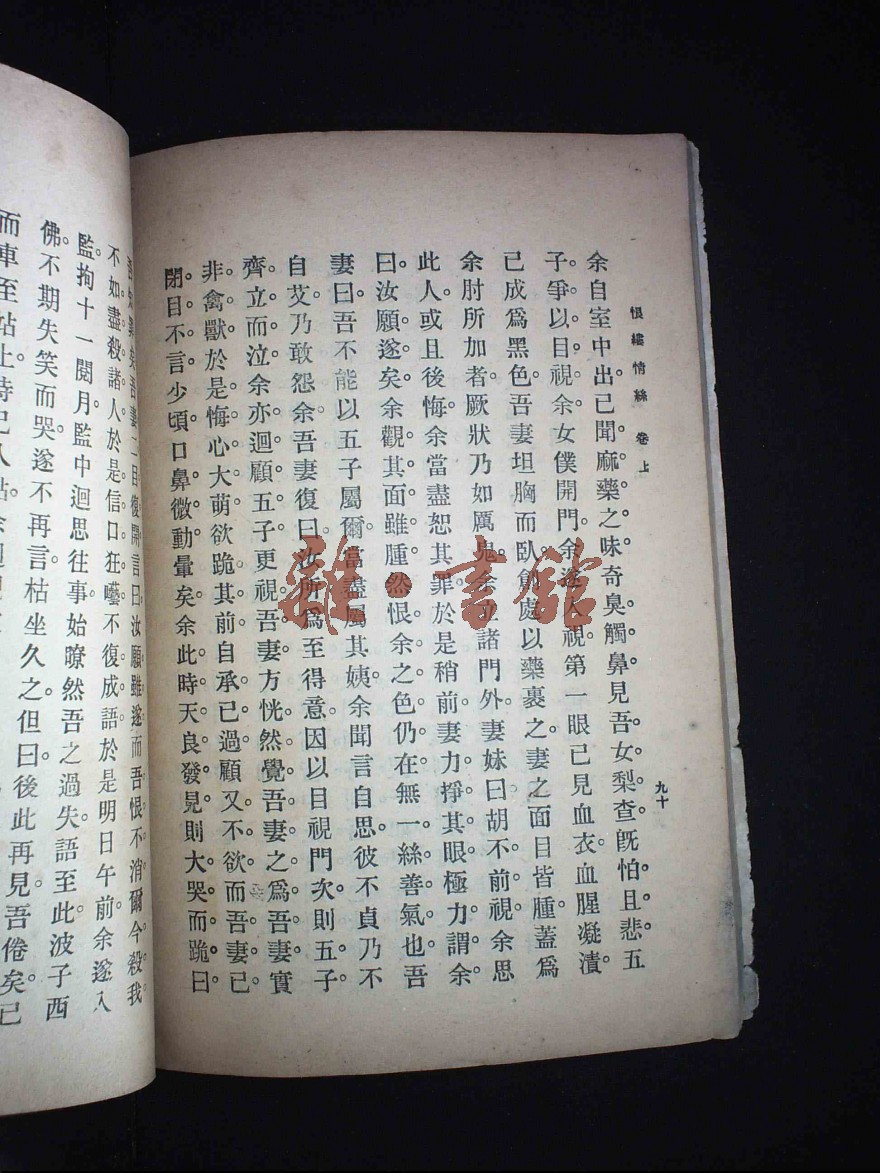 恨縷情絲 卷上
九十
余自室中出已聞麻藥之味奇臭觸鼻見吾女梨查旣怕且悲五
子爭以目視余女僕開門余遂入視第一眼已見血衣血腥凝漬
已成爲黑色吾妻坦胸而臥創處以藥裹之妻之面目皆腫蓋爲
余肘所加者厥狀乃如厲鬼余立諸門外妻妹曰胡不前視余思
此人或且後悔余當盡恕其罪於是稍前妻力掙其眼極力謂余
曰汝願遂矣余觀其面雖腫然恨余之色仍在無一絲善氣也吾
妻曰吾不能以五子屬爾當盡屬其姨余聞言自思彼不貞乃不
自艾乃敢怨余吾妻復曰汝所爲至得意因以目視門次則五子
齊立而泣余亦迴顧五子更視吾妻方恍然覺吾妻之爲吾妻實
非禽獸於是悔心大萌欲跪其前自承已過顧又不欲而吾妻已
閉目不言少頃口鼻微動暈矣余此時天良發見則大哭而跪曰
吾妻二目復開言曰汝願雖遂而吾恨不消爾今殺我
不如盡殺諸人於是信口狂囈不復成語於是明日午前余遂入
監拘十一閱月監中迴思往事始暸然吾之過失語至此波子西
佛不期失笑而哭遂不再言枯坐久之但曰後此再見吾倦矣已
而車至站上時已入
雜·書館